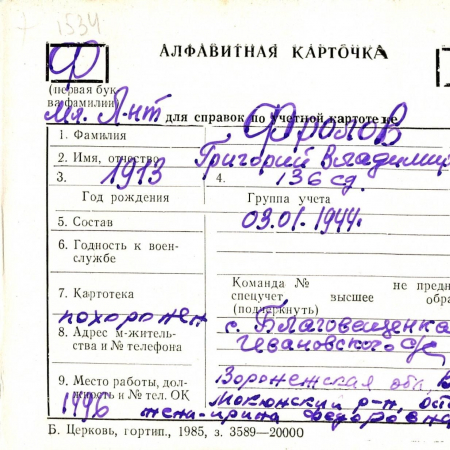 1534
Ф
АЛФАВИТНАЯ КАРТОЧКА
(первая бук
ва фамилии)
Мл. Л-нт для справок по учетной картотеке
1. Фамилия Фролов
2. Имя, отчество Григорий Владимир
3. 1913 4. 136 сд.
Год рождения Группа учета
5. Состав 03.01.1944г.
6. Годность к воен-
службе
Команда № не предн
7. Картотека спецучет высшее обра
(подчеркнуть)
похоронен с. Благовещенка
8. Адрес м-житель-
ства и № телефона
Ивановского с/с
Воронежская обл. В
9. Место работы, дол-
жность и № тел. ОК
1446 р-н,
жена-Ирина Федоровна
Б. Церковь, гортип., 1985, з. 3589—20000